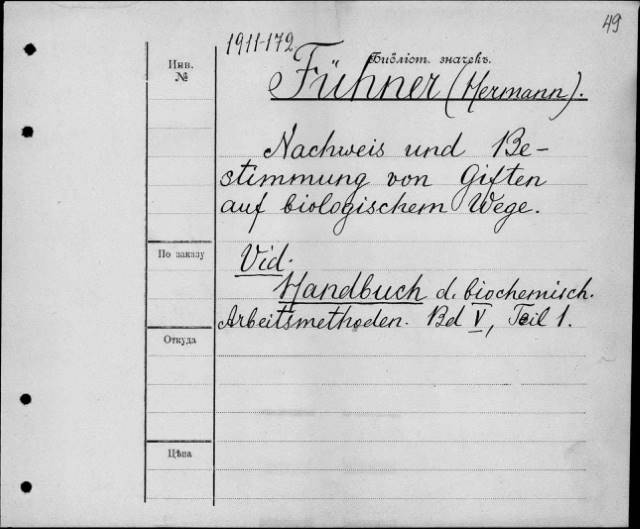 49
1911-172
Библіот. значекъ.
Инв.
№
Fühner (Hermann).
Nachweis und Be-
stimmung von Giften
auf biologischem Wege.
По заказу
Vid.
Handbuch d. biochemisch.
Arbeitsmethoden. Bd V, Teil 1.
Откуда
Цѣна